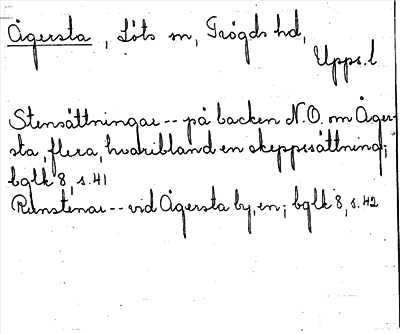 Ågersta, Löts sn, Trögds hd,
Upps.l
Stensättningar -- på backen N.O. om Åger-
sta, flera, hvaribland en skeppssättning;
bglk 8, s.41
Runstenar -- vid Ågersta by, en; bglk 8, s.42